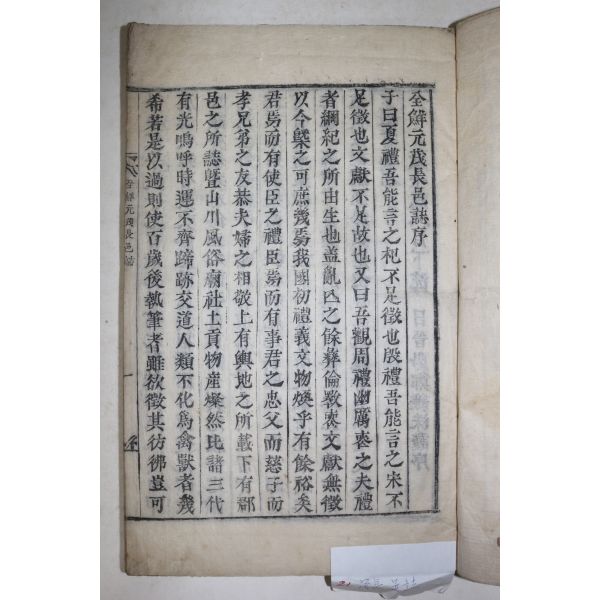 全鮮元茂長邑誌序
子曰夏禮吾能言之杞不足徵也殷禮吾能言之宋不
足徵也文獻不足故也又曰吾觀周禮幽厲喪之夫禮
者綱紀之所由生也盖亂亾之餘彛倫斁喪文獻無徵
以今槩之可庶幾焉我國初禮義文物煥乎有餘裕矣
君焉而有使臣之禮臣焉而有事君之忠父而慈子而
孝兄弟之友恭夫婦之相敬上有輿地之所載下有郡
邑之所誌曁山川風俗廟社土貢物産燦然比諸三代
有光嗚呼時運不齊蹄跡交道人類不化爲禽獸者幾
希若是以過則使百歲後執筆者雖欲徵其彷彿豈可
全鮮元茂長邑誌
序
一